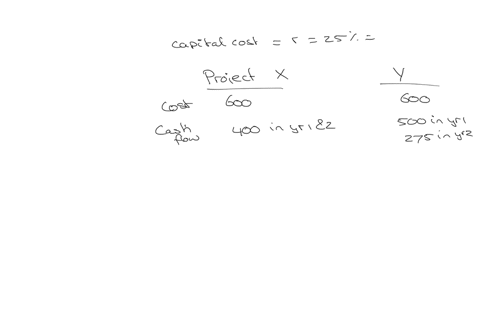 capital cost = r = 25% =
Project X Y
Cost 600 600
Cash flow 400 in yr 1 & 2 500 in yr 1
275 in yr 2